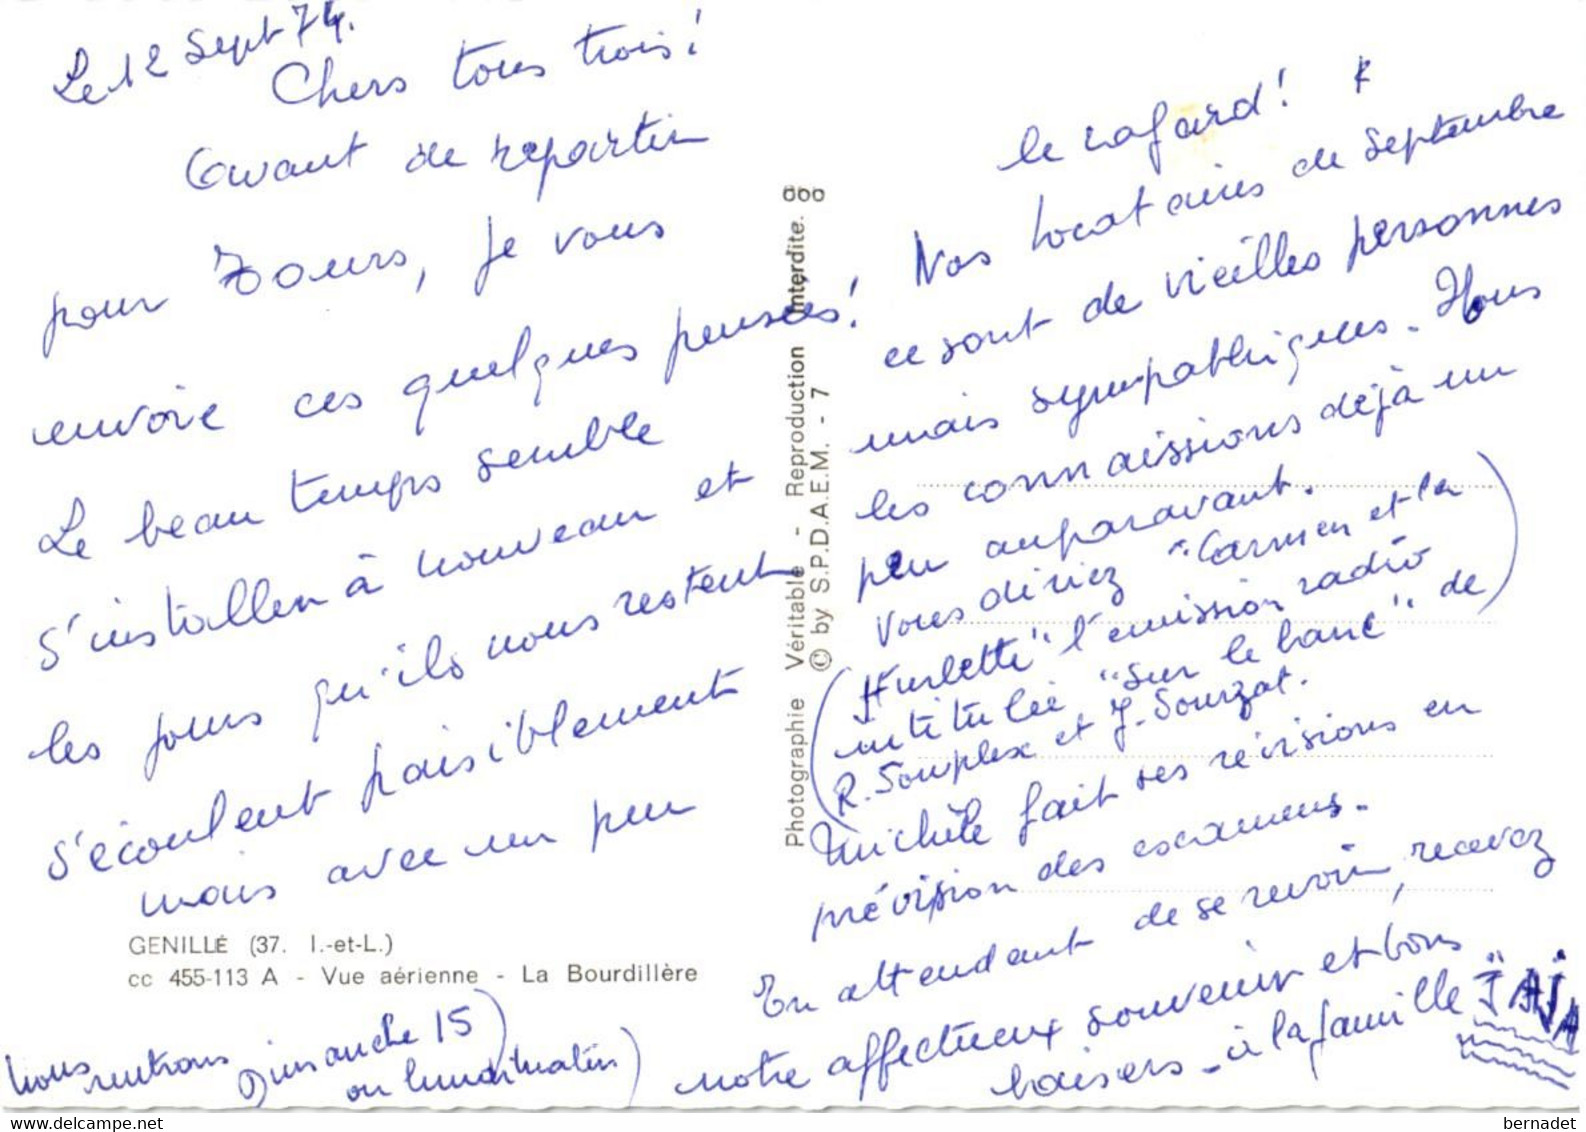 Le 12 Sept 74.
Chers tous trois!
Avant de repartir
pour Tours, je vous
envoie ces quelques pensées!
Le beau temps semble
s'installer à nouveau et
les jours qu'ils nous restent
s'écoulent paisiblement
mais avec un peu
GENILLÉ (37. I.-et-L.)
cc 455-113 A - Vue aérienne - La Bourdillère
Nous rentrons Dimanche 15
ou lundi matin)
Photographie Véritable - Reproduction Interdite.
© by S.P.D.A.E.M. - 7
le cafard!
Nos locataires de Septembre
ce sont de vieilles personnes
mais sympathiques. Nous
les connaissions déjà un
peu auparavant.
Vous diriez "Carmen et la
Hurlette" l'émission radio
intitulée "Sur le banc" de
R. Souplex et J. Sourzat.
Michèle fait ses révisions en
prévision des examens.
En attendant de se revoir, recevez
notre affectueux souvenir et bons
baisers - à la famille "JAJA
bernadet